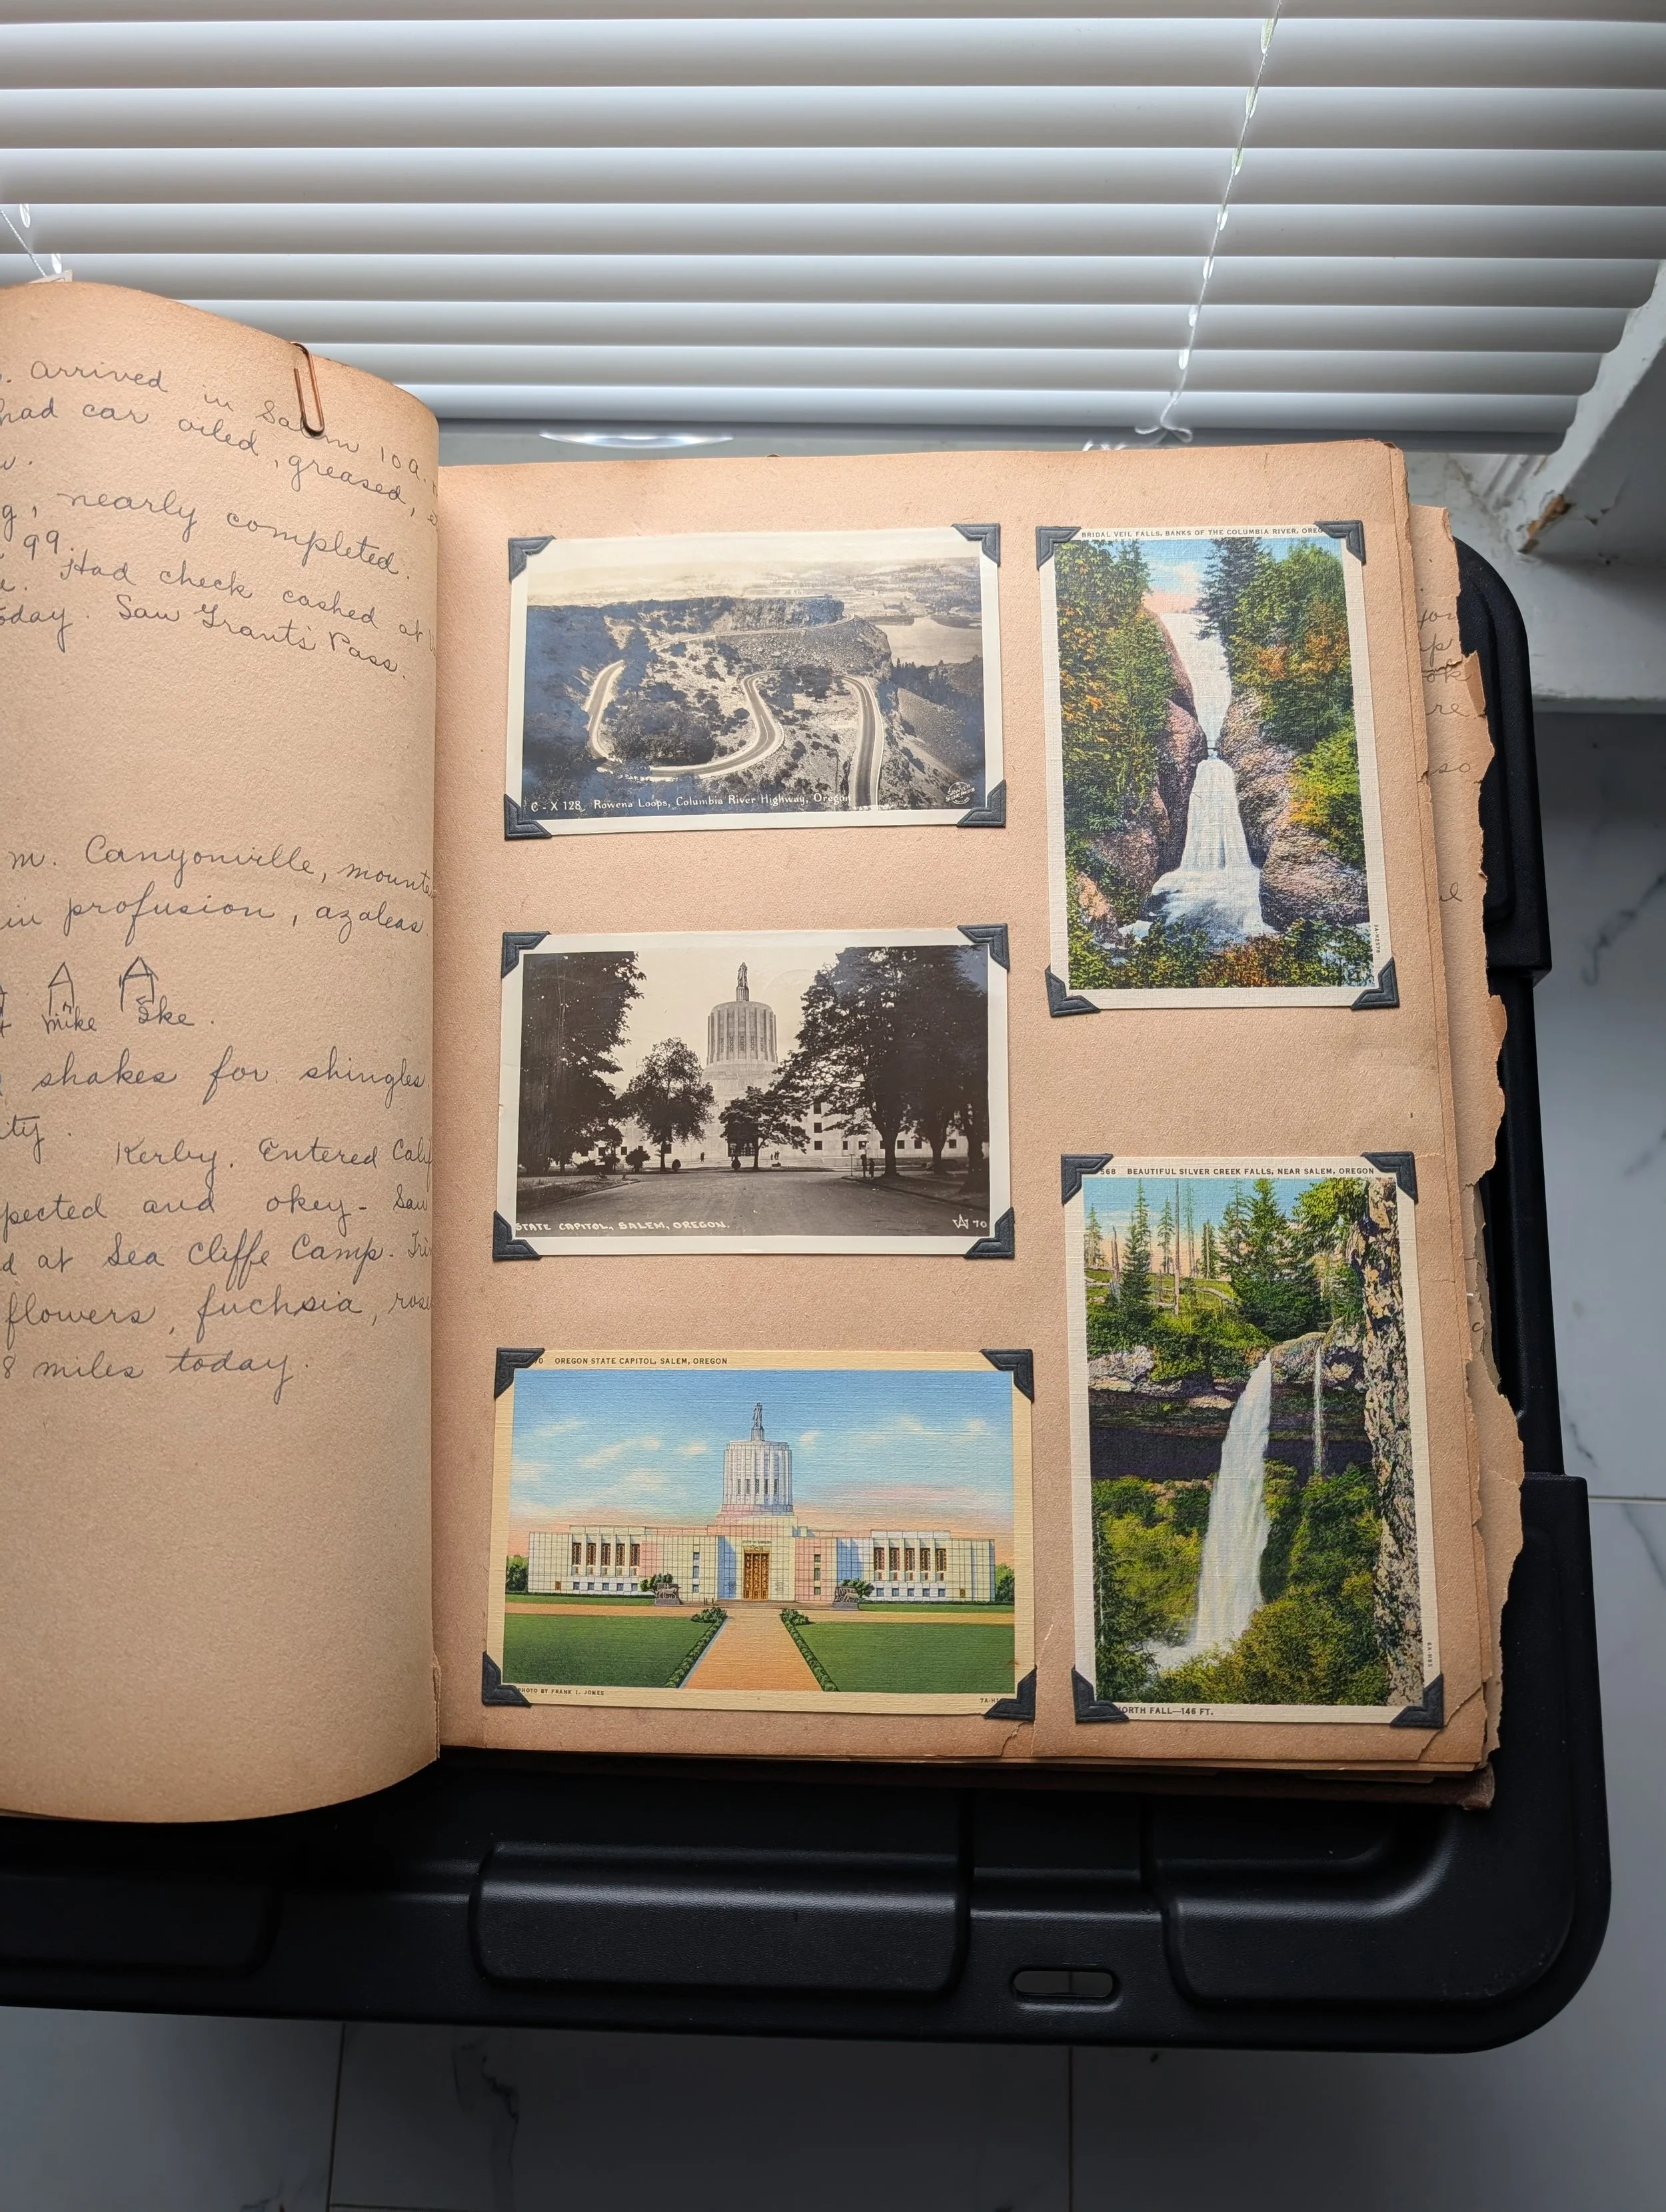 . arrived in Salem 10 a.
had car oiled, greased,
g, nearly completed.
99.
Had check cashed at
oday. Saw Grants Pass.
m. Canyonville, mount
in profusion, azaleas
mike Ike.
shakes for shingles
ity.
Kerby. Entered Calif
pected and okey - Saw
d at Sea Cliffe Camp.
flowers, fuchsia, rose
8 miles today.
C-X 128. Rowena Loops, Columbia River Highway, Oregon
BRIDAL VEIL FALLS, BANKS OF THE COLUMBIA RIVER, OREG
STATE CAPITOL, SALEM, OREGON.
70
568 BEAUTIFUL SILVER CREEK FALLS, NEAR SALEM, OREGON
NORTH FALL—146 FT.
OREGON STATE CAPITOL, SALEM, OREGON
STATE OF OREGON
PHOTO BY FRANK I. JONES
7A-H